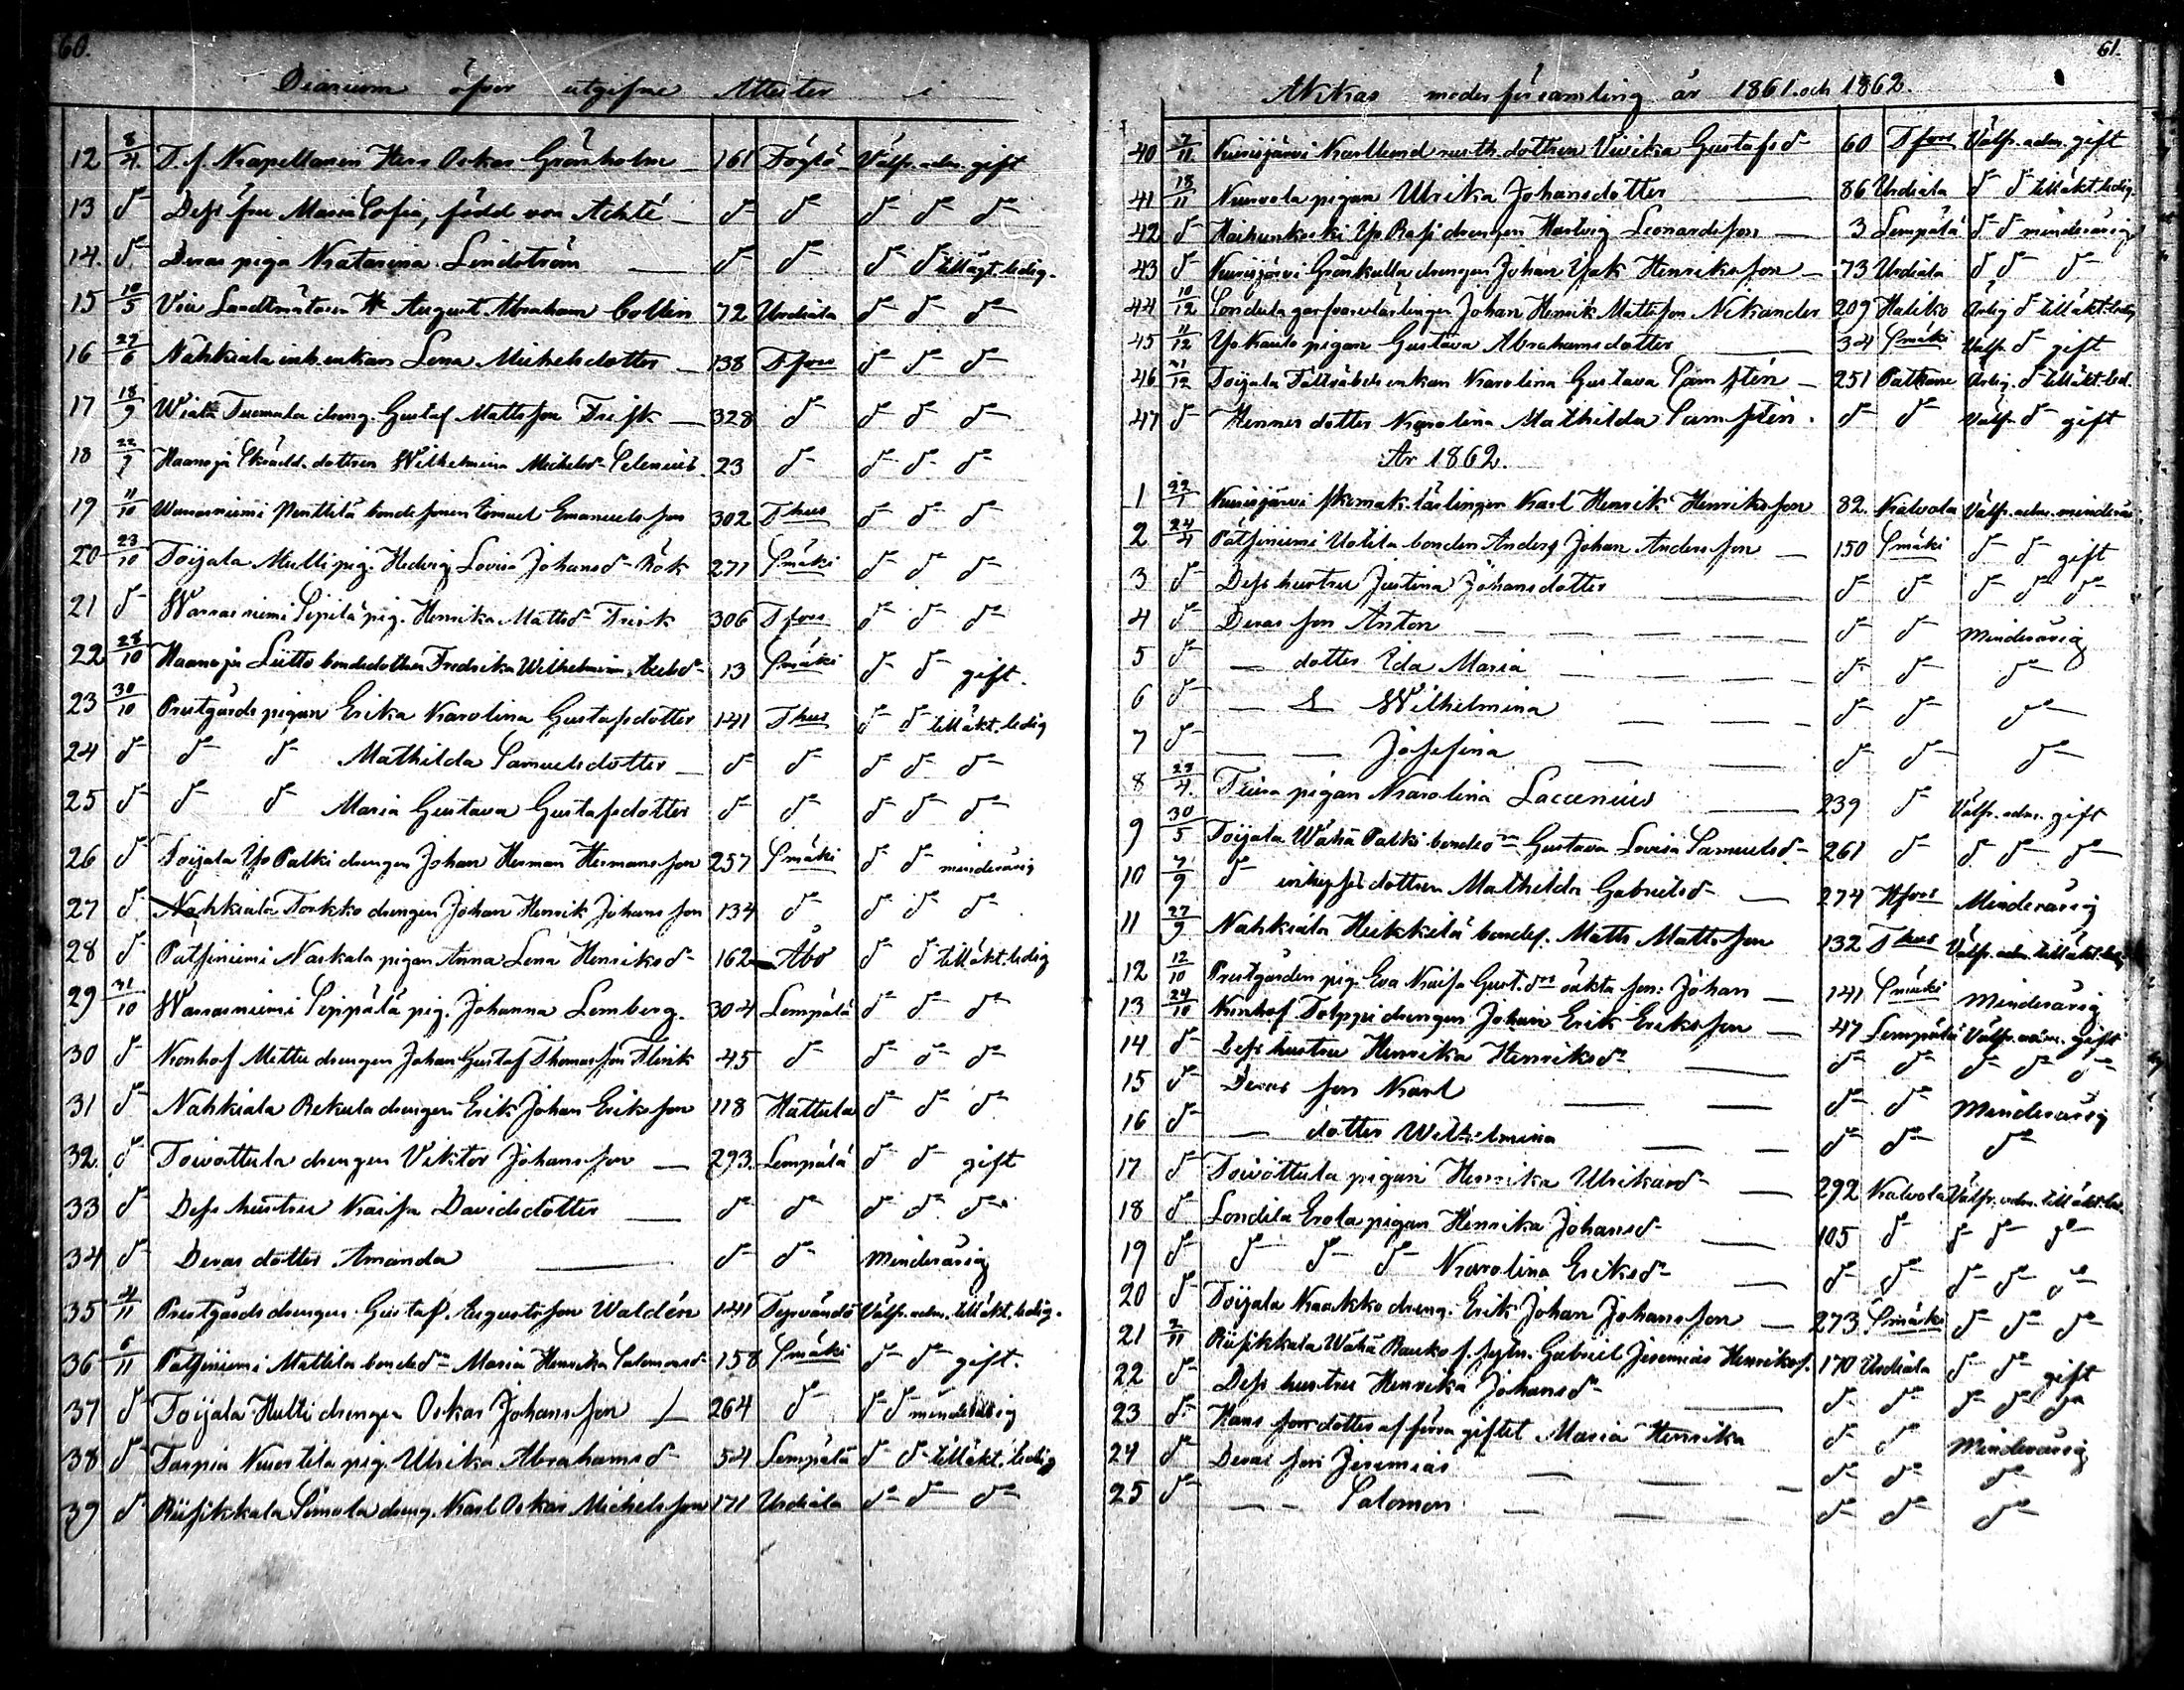 60.
Diarium öfver utgifne Attester i
12 8/4 T. f. Kapellanen Herr Oskar Granholm 161 Föglö Välfr. adm. gift
13 d:o Dess fru Maria Sofia, född von Achté d:o d:o d:o d:o d:o
14. d:o Deras piga Katarina Lindström d:o d:o d:o d:o till ägt. ledig.
15 10/5 Vice Landtmätaren H August Abraham Collin 72 Urdiala d:o d:o d:o
16 27/6 Nahkiala inh. enkan Lena Michelsdotter 138 T fors d:o d:o d:o
17 18/9 Wiala Tuomala dreng. Gustaf Mattsson Frisk 328 d:o d:o d:o d:o
18 22/9 Haanoja Skrädd. dottren Wilhelmina Michelsd:r Selenius 23 d:o d:o d:o d:o
19 11/10 Warrasniemi Penttilä bondesonen Emanuelsson 302 T hus d:o d:o d:o
20 23/10 Toijala Multi pig. Hedvig Lovisa Johansd:r Rök 271 Smäki d:o d:o d:o
21 d:o Warrasniemi Sipilä pig. Henrika Mattsd:r Frisk 306 T fors d:o d:o d:o
22 28/10 Haanoja Liitto bondedottren Fredrika Wilhelmina Axelsd:r 13 Smäki d:o d:o gift.
23 30/10 Prestgårds pigan Erika Karolina Gustafsdotter 141 T hus d:o d:o till äkt. ledig
24 d:o d:o d:o Mathilda Samuelsdotter d:o d:o d:o d:o d:o
25 d:o d:o d:o Maria Gustava Gustafsdotter d:o d:o d:o d:o d:o
26 d:o Toijala Yli Palki drengen Johan Herman Hermansson 257 Smäki d:o d:o minderårig
27 d:o Nahkiala Torkko drengen Johan Henrik Johansson 134 d:o d:o d:o d:o
28 d:o Pätsiniemi Naskala pigan Anna Lena Henriksd:r 162 Åbo d:o d:o till äkt. ledig
29 31/10 Warrasniemi Seppälä pig. Johanna Lemberg. 304 Lempälä d:o d:o d:o
30 d:o Konhof Mettu drengen Johan Gustaf Thomasson Flink 45 d:o d:o d:o d:o
31 d:o Nahkiala Rekula drengen Erik Johan Eriksson 118 Hattula d:o d:o d:o
32. d:o Toivottula drengen Viktor Johansson 293. Lempälä d:o d:o gift
33 d:o Dess hustru Kaisa Davidsdotter d:o d:o d:o d:o d:o
34 d:o Deras dotter Amanda d:o d:o Minderårig
35 4/11 Prestgårds drengen Gustaf Augustsson Waldén 141 Tyrvändö Välfr. adm. till äkt. ledig.
36 6/11 Pätsiniemi Mattila bonded:r Maria Henrika Salomonsd:r 158 Smäki d:o d:o gift.
37 d:o Toijala Hulti drengen Oskar Johansson 264 d:o d:o d:o minderårig
38 d:o Tarpia Kuortila pig. Ulrika Abrahamsd:r 54 Lempälä d:o d:o till äkt. ledig
39 d:o Riisikkala Simola dreng. Karl Oskar Michelsson 171 Urdiala d:o d:o d:o
61.
Akkas moderförsamling år 1861. och 1862.
40 7/11 Kurisjärvi Karlberd rusth. dottren Vivika Gustafsd:r 60 T fors Välfr. adm. gift
41 18/11 Kurvola pigan Ulrika Johansdotter 86 Urdiala d:o d:o till äkt. ledig.
42 d:o Haihunkoski Yli Rasi drengen Hartvig Leonardsson 3 Lempälä d:o d:o minderårig
43 d:o Kurisjärvi Gråskulla drengen Johan Isak Henriksson 73 Urdiala d:o d:o d:o
44 10/12 Sondula garfvarelärlingen Johan Henrik Mattsson Nikander 209 Haliko Ärlig d:o till äkt. ledig
45 11/12 Yli Kauto pigan Gustava Abrahamsdotter 34 Smäki Välfr. d:o gift
46 21/12 Toijala Fältväbels enkan Karolina Gustava Samstén 251 Palkane Ärlig. d:o till äkt. led.
47 d:o Hennes dotter Karolina Mathilda Samstén. d:o d:o Välfr. d:o gift
År 1862.
1 22/1 Kurisjärvi skomak. lärlingen Karl Henrik Henriksson 82. Kalvola Välfr. adm. minderår
2 24/4 Pätsiniemi Uotila bonden Anders Johan Andersson 150 Smäki d:o d:o gift
3 d:o Dess hustru Justina Johansdotter d:o d:o d:o d:o d:o
4 d:o Deras son Anton d:o d:o Minderårig
5 d:o dotter Ida Maria d:o d:o d:o
6 d:o Wilhelmina d:o d:o d:o
7 d:o Josefina d:o d:o d:o
8 28/4. Tiura pigan Karolina Laccenius 239 d:o Välfr. adm. gift
9 30/5 Toijala Wähä Palki bonde Gustava Lovisa Samuelsd:r 261 d:o d:o d:o d:o
10 7/9 d:o inhyses dottren Mathilda Gabrielsd:r 274 H fors Minderårig
11 27/9 Nahkiala Heikkilä bondes. Matts Mattsson 132 T hus Välfr. adm. till äkt. led.
12 12/10 Prestgården pig. Eva Kaisa Gust. d:rs oäkta son: Johan 141 Smäki Minderårig
13 24/10 Konhof Tolppi drengen Johan Erik Eriksson 47 Lempälä Välfr. adm. gift
14 d:o Dess hustru Henrika Henriksd:r d:o d:o d:o d:o d:o
15 d:o Deras son Karl d:o d:o Minderårig
16 d:o dotter Wilhelmina d:o d:o d:o
17 d:o Toivottula pigan Henrika Ulrikasd:r 292 Kalvola Välfr. adm. till äkt. led.
18 d:o Sondila Erola pigan Henrika Johansd:r 105 d:o d:o d:o d:o
19 d:o d:o d:o d:o Karolina Eriksd:r d:o d:o d:o d:o d:o
20 d:o Toijala Kaakko dreng. Erik Johan Johansson 273 Smäki d:o d:o d:o
21 2/11 Riisikkala Wähä Rauko f. Gabriel Jeremias Henrikss. 170 Urdiala d:o d:o gift
22 d:o Dess hustru Henrika Johansd:r d:o d:o d:o d:o d:o
23 d:o Hans dotter af förra giftet Maria Henrika d:o d:o Minderårig
24 d:o Deras son Jeremias d:o d:o d:o
25 d:o Salomon d:o d:o d:o